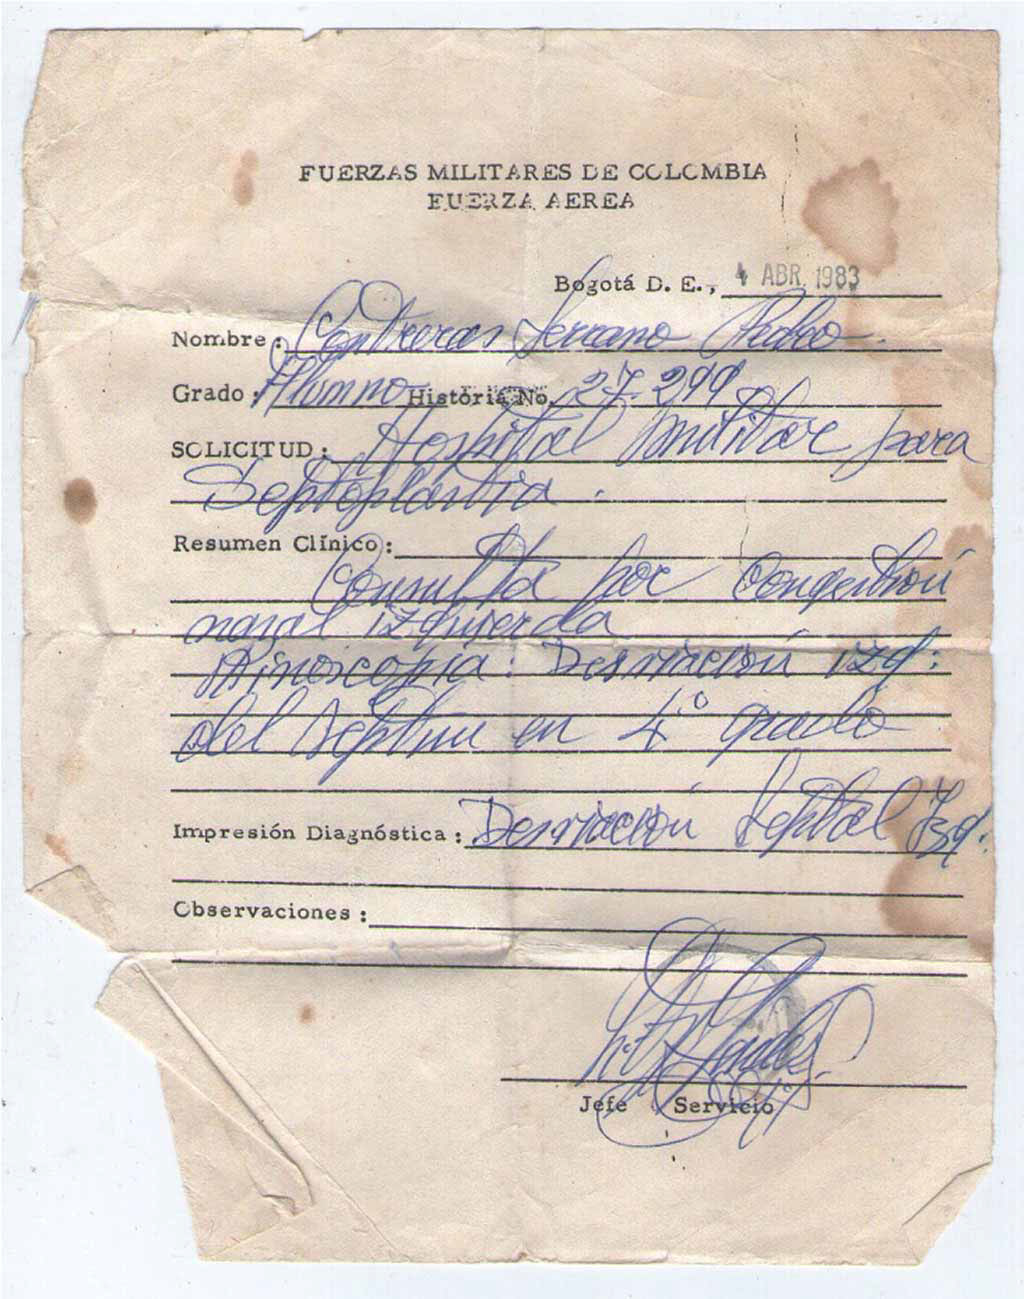 FUERZAS MILITARES DE COLOMBIA
FUERZA AEREA
Bogotá D. E., 4 ABR. 1983
Nombre: Contreras Serrano Pedro.
Grado: Alumno Historia No. 27-299
SOLICITUD: Hospital Militar para
Septoplastia.
Resumen Clínico:
Consulta por congestión
nasal izquierda
Rinoscopia: Desviación izq:
del septum en 4º grado
Impresión Diagnóstica: Desviación Septal Izq.
Observaciones:
Jefe Servicio